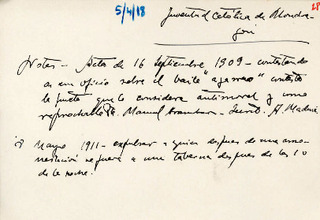 28
5/4/18
Juventud Catolica de Mondra-
gón
Notas - Acta de 16 septiembre 1909 - contestando
a un oficio sobre el baile "agarrao" contesta
la junta que lo considera antimoral y como
reprochable. Manuel
8 Mayo 1911 - expulsar a quien despues de una amo-
nestación se fuera a una taberna despues de las 10
de la noche.